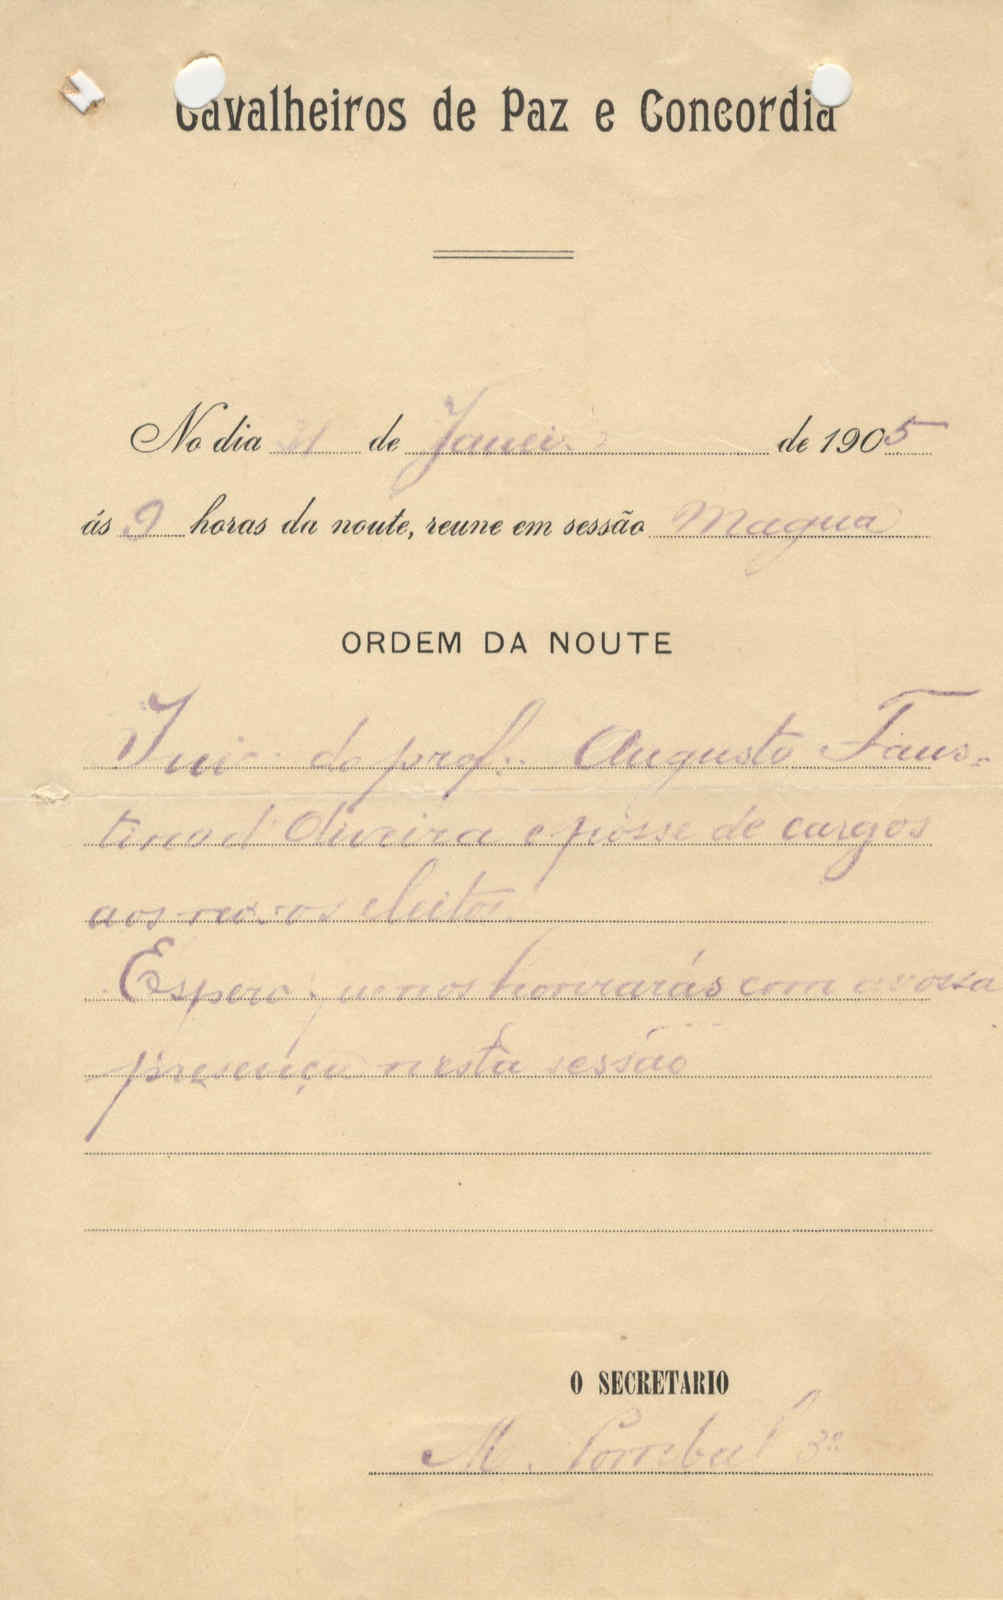 Cavalheiros de Paz e Concordia
No dia 31 de Janeiro de 1905
ás 9 horas da noute, reune em sessão Magna
ORDEM DA NOUTE
do prof. Augusto Faus-
tino d'Oliveira e posse de cargos
aos novos eleitos.
Espero que nos honrarás com a vossa
presença nesta sessão
O SECRETARIO
M. 3º